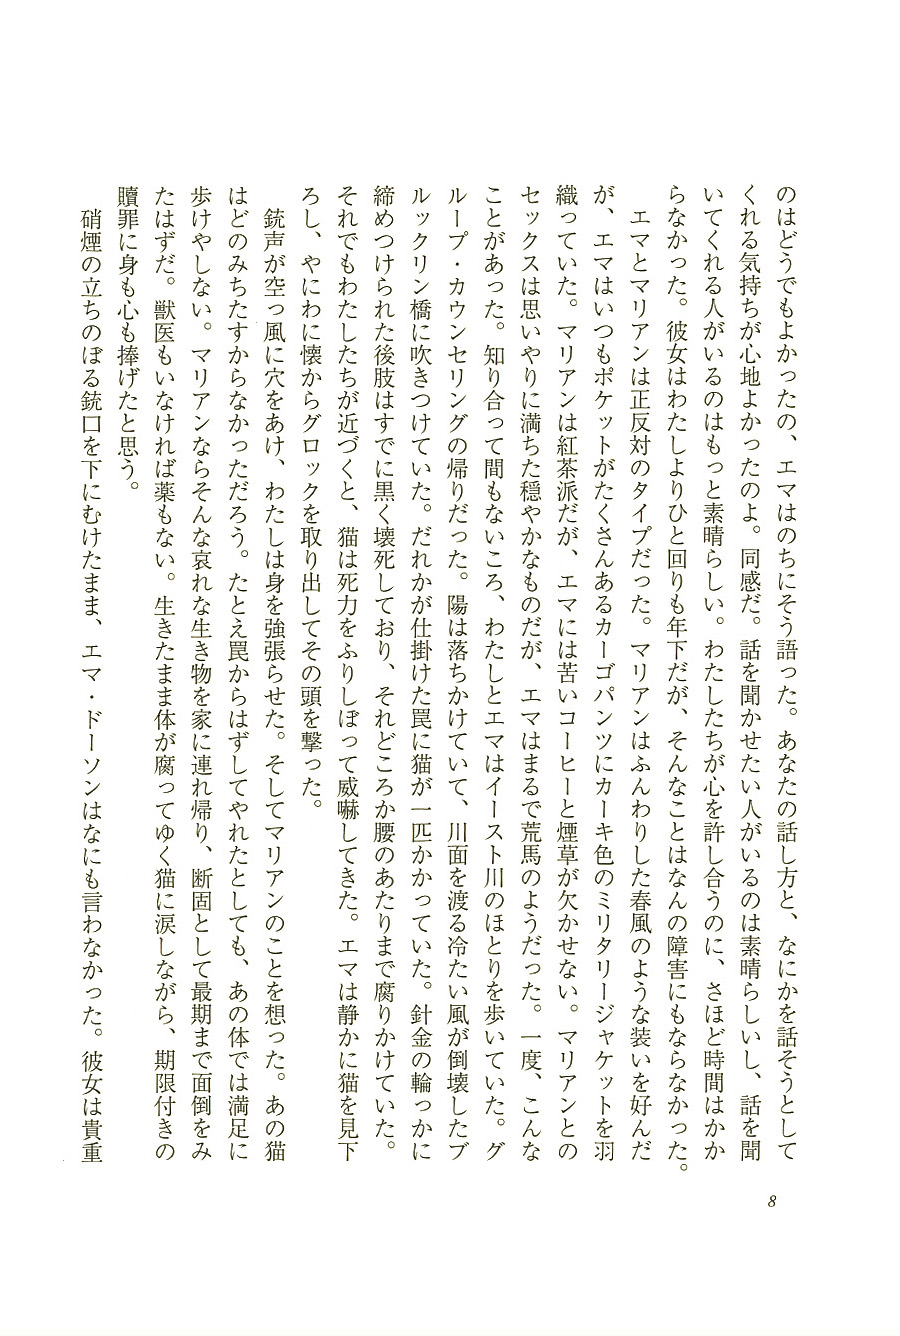 のはどうでもよかったの、エマはのちにそう語った。あなたの話し方と、なにかを話そうとして
くれる気持ちが心地よかったのよ。同感だ。話を聞かせたい人がいるのは素晴らしいし、話を聞
いてくれる人がいるのはもっと素晴らしい。わたしたちが心を許し合うのに、さほど時間はかか
らなかった。彼女はわたしよりひと回りも年下だが、そんなことはなんの障害にもならなかった。
エマとマリアンは正反対のタイプだった。マリアンはふんわりした春風のような装いを好んだ
が、エマはいつもポケットがたくさんあるカーゴパンツにカーキ色のミリタリージャケットを羽
織っていた。マリアンは紅茶派だが、エマには苦いコーヒーと煙草が欠かせない。マリアンとの
セックスは思いやりに満ちた穏やかなものだが、エマはまるで荒馬のようだった。一度、こんな
ことがあった。知り合って間もないころ、わたしとエマはイースト川のほとりを歩いていた。グ
ループ・カウンセリングの帰りだった。陽は落ちかけていて、川面を渡る冷たい風が倒壊したブ
ルックリン橋に吹きつけていた。だれかが仕掛けた罠に猫が一匹かかっていた。針金の輪っかに
締めつけられた後肢はすでに黒く壊死しており、それどころか腰のあたりまで腐りかけていた。
それでもわたしたちが近づくと、猫は死力をふりしぼって威嚇してきた。エマは静かに猫を見下
ろし、やにわに懐からグロックを取り出してその頭を撃った。
銃声が空っ風に穴をあけ、わたしは身を強張らせた。そしてマリアンのことを想った。あの猫
はどのみちたすからなかっただろう。たとえ罠からはずしてやれたとしても、あの体では満足に
歩けやしない。マリアンならそんな哀れな生き物を家に連れ帰り、断固として最期まで面倒をみ
たはずだ。獣医もいなければ薬もない。生きたまま体が腐ってゆく猫に涙しながら、期限付きの
贖罪に身も心も捧げたと思う。
硝煙の立ちのぼる銃口を下にむけたまま、エマ・ドーソンはなにも言わなかった。彼女は貴重
8